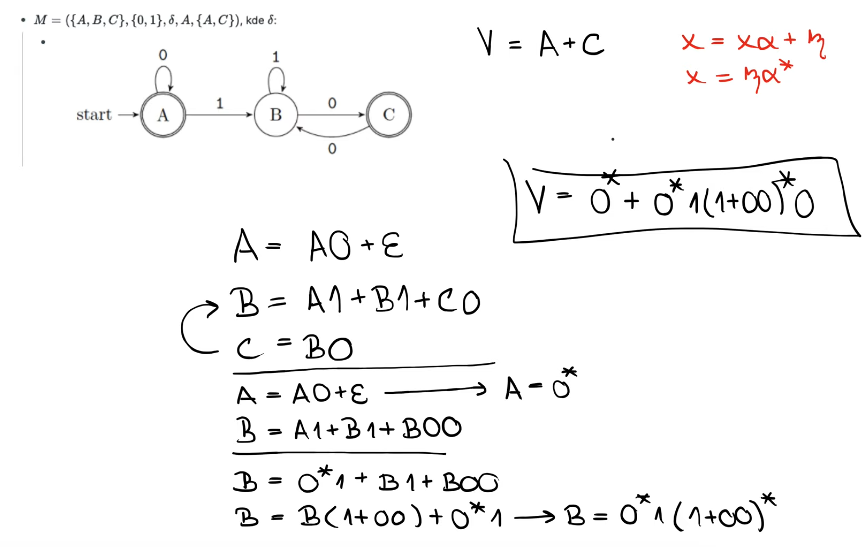 • M = ({A, B, C}, {0, 1}, δ, A, {A, C}), kde δ:
•
0
1
start
A
1
B
0
C
0
V = A+C
x = xα + β
x = βα*
V = 0* + 0*1(1+00)*0
A = A0 + ε
B = A1 + B1 + C0
C = B0
A = A0+ε → A = 0*
B = A1+B1+B00
B = 0*1 + B1 + B00
B = B(1+00) + 0*1 → B = 0*1(1+00)*